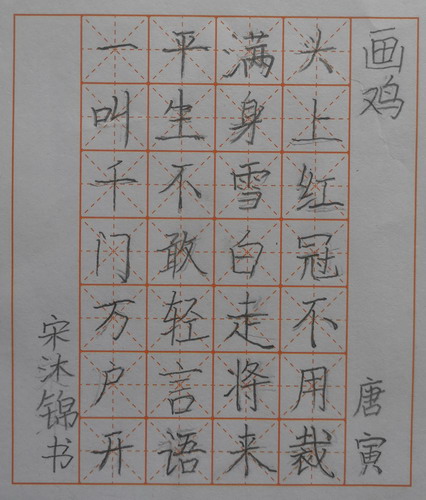 画鸡 唐寅
头上红冠不用裁
满身雪白走将来
平生不敢轻言语
一叫千门万户开
宋沐锦书